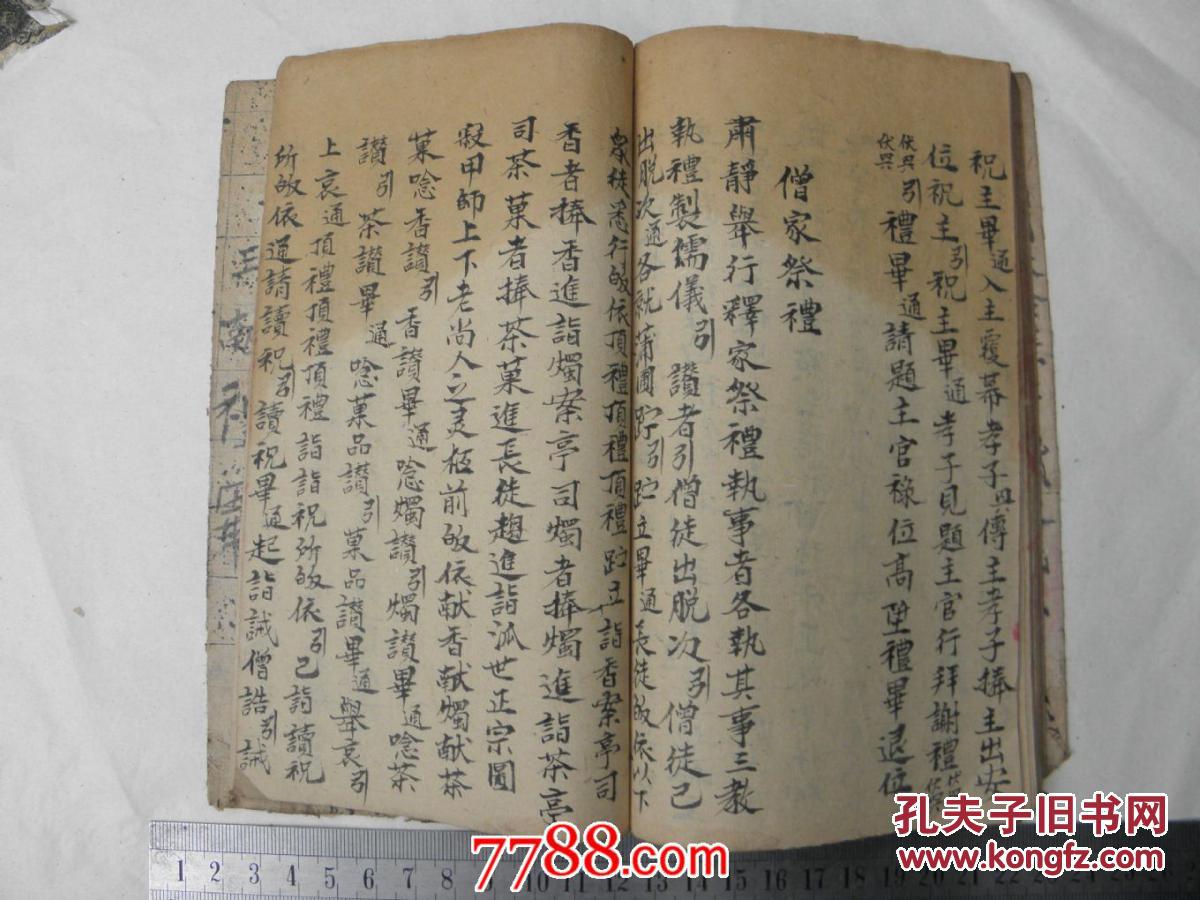 祝主畢通入主覆幕孝子四傳主孝子捧主出安
位祝主引祝主畢通孝子見題主官行拜謝禮
伏興伏興引禮畢通請題主官祿位高陞禮畢退位
僧家祭禮
肅靜舉行釋家祭禮執事者各執其事三教
執禮製儒儀引讚者引僧徒出脫次引僧徒已
出脫次通各就蒲團跕引跕立畢通長徒皈依以下
眾徒悉行皈依頂禮頂禮頂禮跕立詣香案亭司
香者捧香進詣燭案亭司燭者捧燭進詣茶亭
司茶菓者捧茶菓進長徒趨進詣泒世正宗圓
寂甲師上下老尚人之灵柩前皈依献香献燭献茶
菓唸香讃引香讃畢通唸燭讃引燭讃畢通唸茶
讃引茶讃畢通唸菓品讃引菓品讃畢通舉哀引
上哀通頂禮頂禮頂禮詣詣祝所皈依引已詣讀祝
所皈依通請讀祝引讀祝畢通起詣誡僧誥引誡
孔夫子旧书网
www.kongfz.com
7788.com
1 2 3 4 5 6 7 8 9 10 11 12 13 14 15 16 17 18 19 20